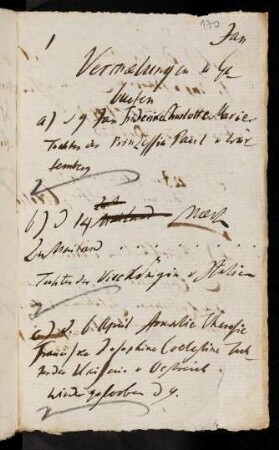 1
170
Jan
Vermælungen u Ge
burten
a) d 9 Jan Friderica Charlotte Marie
Tochter der Prinzessin Paul v Wür
temberg
b) d 14 März
Zu Mailand . . . . . . .
Tochter der Vicekönigin v Italien
c) d. 6 April Amalie Therese
Francisca Josephine Coelestine Toch
ter der Kaiserin v Oestreich
wieder gestorben d 9.